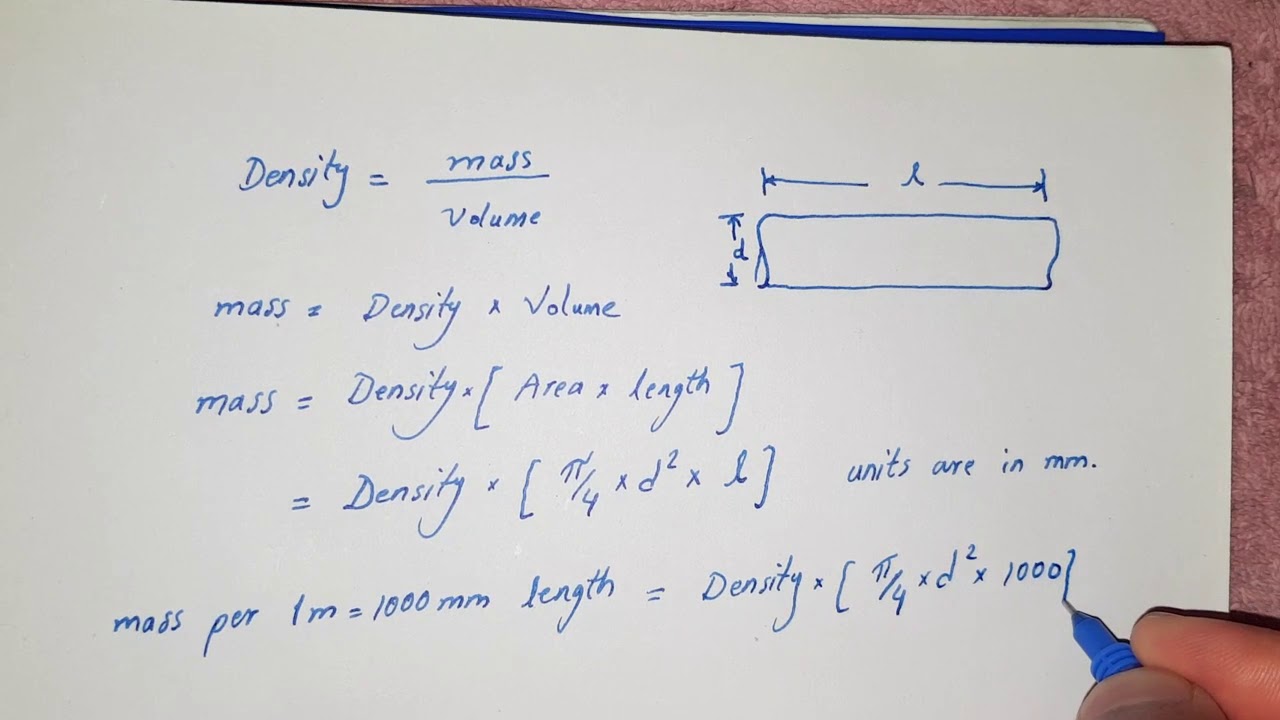 Density = mass / volume
l
d
mass = Density × Volume
mass = Density × [ Area × length ]
= Density × [ π/4 × d² × l ] units are in mm.
mass per 1m = 1000 mm length = Density × [ π/4 × d² × 1000 ]